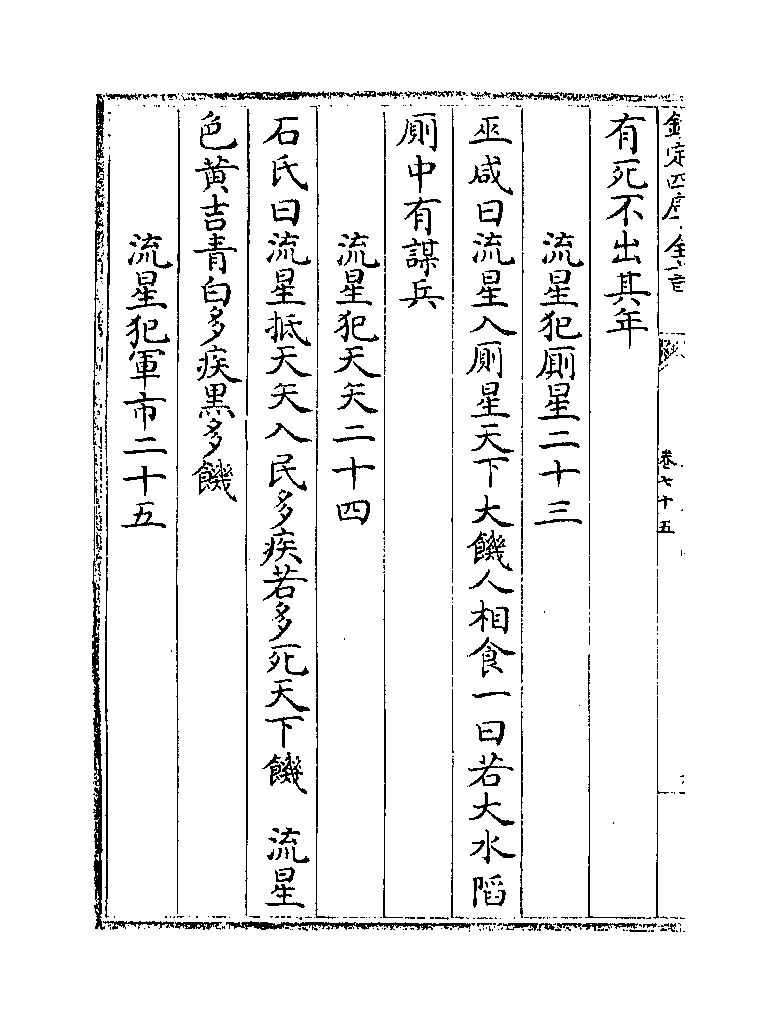 欽定四庫全書
卷七十五
有死不出其年
流星犯厠星二十三
巫咸曰流星入厠星天下大饑人相食一曰若大水䧟
厠中有謀兵
流星犯天矢二十四
石氏曰流星抵天矢入民多疾若多死天下饑　流星
色黄吉青白多疾黒多饑
流星犯軍市二十五